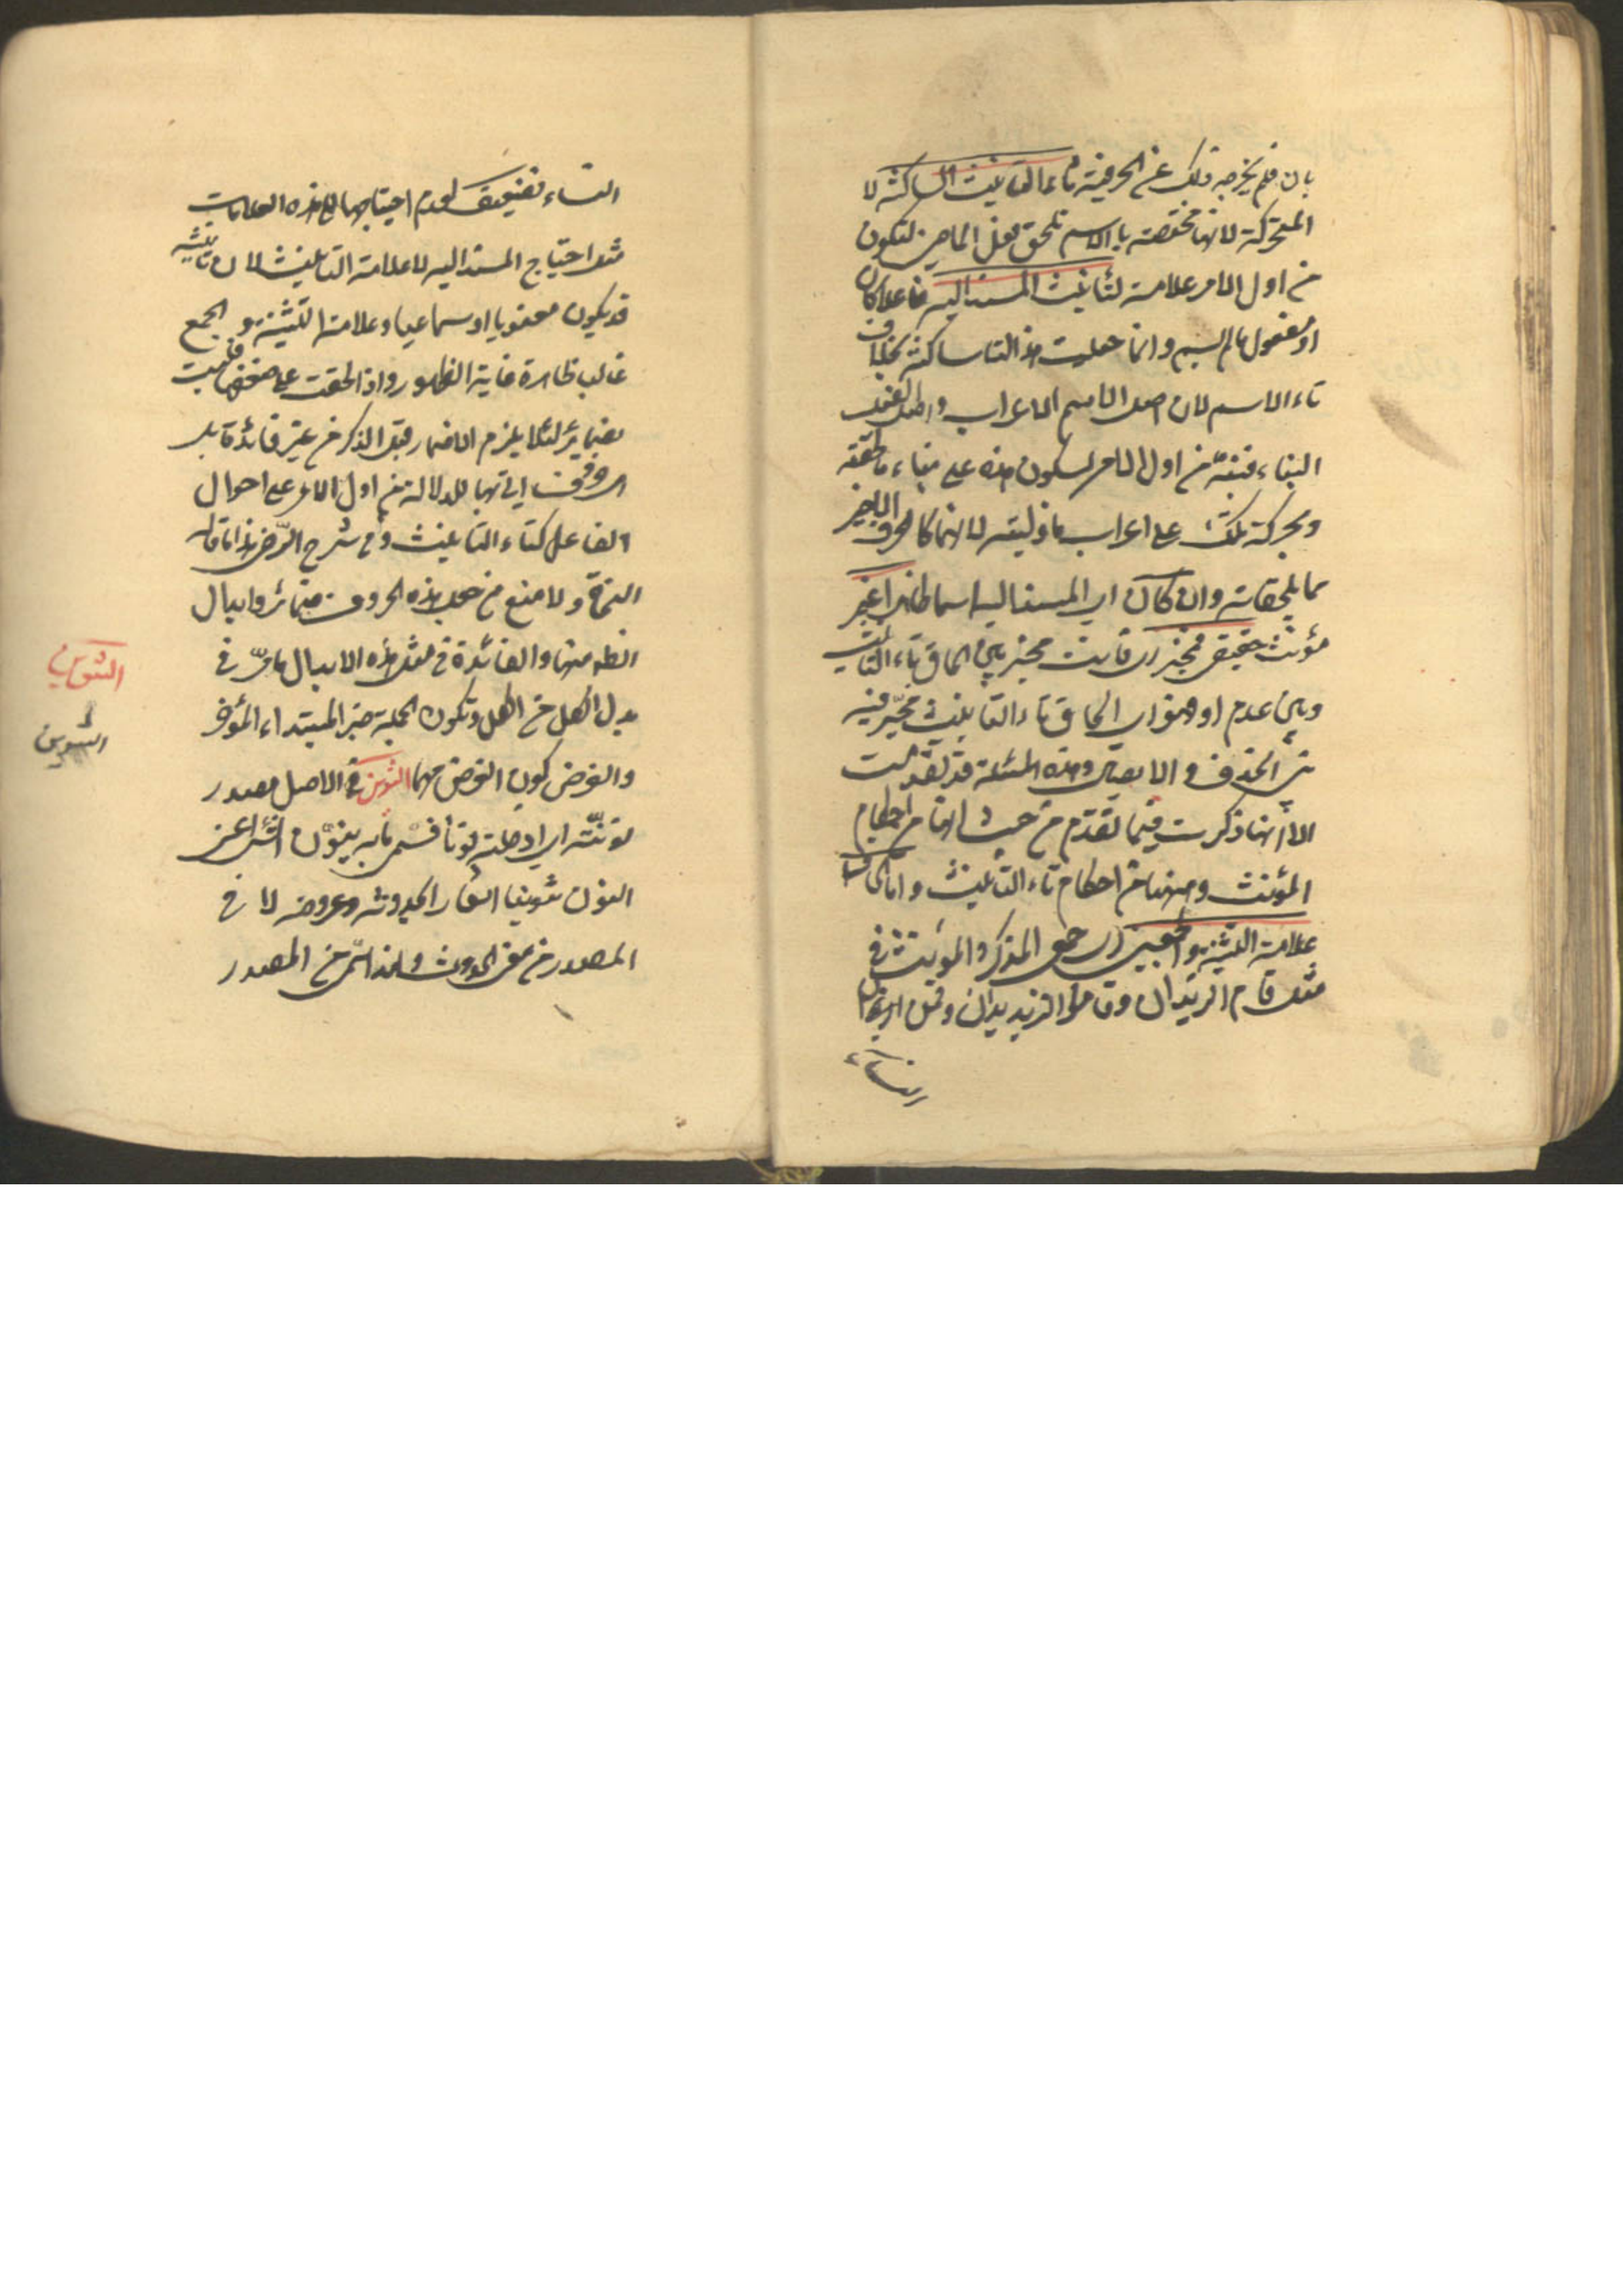 بان فلم يخرجه ذلك عن الحرفية تاء التأنيث الساكنة لا
المتحركة لانها مختصة بالاسم تلحق الفعل الماضى لتكون
من اول الامر علامة لتأنيث المسند اليه فاعلا كان
او مفعول ما لم يسم وانما جعلت هذه التا ساكنة بخلاف
تاء الاسم لان اصل الاسم الاعراب واصل الفعل
البناء فنبه من اول الامر بسكون هذه على بناء ما لحقته
وبحركة تلك على اعراب ما وليته لانهما كالحرف الاخير
مما يلحقانه وان كان اى المسند اليه اسما ظاهرا غير
مؤنث حقيقى فمخير اى فانت مخير بين الحاق تاء التأنيث
وبين عدمه او هو اى الحاق تاء التأنيث مخير فيه
على الحذف والايصال وهذه المسئلة قد تقدمت
الا انها ذكرت فيما تقدم من حيث انها من احكام
المؤنث وههنا من احكام تاء التأنيث واما الحاق
علامة التثنية والجمعين اى جمع المذكر والمؤنث فى
مثل قاما الزيدان وقاموا الزيدون وقمن
النساء
النساء فضعيف لعدم احتياجها الى هذه العلامات
مثل احتياج المسند اليه لا علامة التأنيث لان تأنيثه
قد يكون معنويا او سماعيا وعلامة التثنية والجمع
غالبا ظاهرة غاية الظهور واذا لحقت على ضعفها فليست
بضمائر لئلا يلزم الاضمار قبل الذكر من غير فائدة بل
حروف اتى بها للدلالة من اول الامر على احوال
الفاعل كتاء التأنيث وفى شرح الرضى هذا ما قاله
النحاة ولا منع من جعل هذه الحروف ضمائر وابدال
الظاهر منها والفائدة فى مثل هذه الابدال ما مر فى
بدل الكل من الكل وتكون الجملة خبر المبتداء المؤخر
والغرض كون الخبر مهما التنوين فى الاصل مصدر
نونته اى ادخلته نونا فسمى ما به ينون الشئ اعنى
النون تنوينا اشعارا بحدوثه وعروضه لما فى
المصدر من معنى الحدوث ولهذا سمى المصدر
التنوين
التنوين